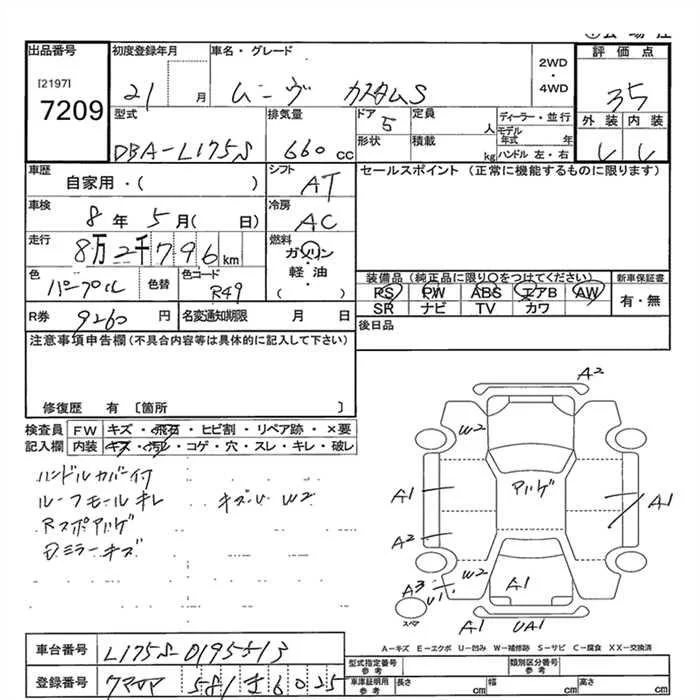 出品番号 初度登録年月 車名・グレード 評価点
[2197]
7209
21 月 ムーヴ カスタムS 2WD ・ 4WD 35
型式 排気量 ドア 5 定員 人 ディーラー・並行 外装 内装
DBA-L175S 660 cc 形状 積載 kg モデル年式 年 ハンドル 左・右
車歴 シフト セールスポイント (正常に機能するものに限ります)
自家用・( ) AT
車検 冷房
8年 5月( 日) AC
走行 燃料
8万2千796 km ガソリン
軽油
・
( )
色 色替 色コード
パープル R49
装備品(純正品に限り○をつけてください) 新車保証書
PS PW ABS エアB AW 有・無
SR ナビ TV カワ
R券 9260 円 名変通知期限 月 日 後日品
注意事項申告欄(不具合内容等は具体的に記入して下さい)
修復歴 有 〔箇所 〕
検査員 FW キズ・飛石・ヒビ割・リペア跡・×要
記入欄 内装 キズ・汚レ・コゲ・穴・スレ・キレ・破レ
ハンドルカバー付
ルーフモールキレ キズU W2
Rスポアルゲ
ミラーキズ
A2
W2
アルゲ
A1 A1
A2
A3 U1 W2 A1
スペア
A1 UA1
A-キズ E-エクボ U-凹み W-補修跡 S-サビ C-腐食 XX-交換済
車台番号 L175S-0195513
型式指定番号 参考 類別区分番号 参考
登録番号 581 6025
車庫証明用 参考 長さ cm 幅 cm 高さ cm